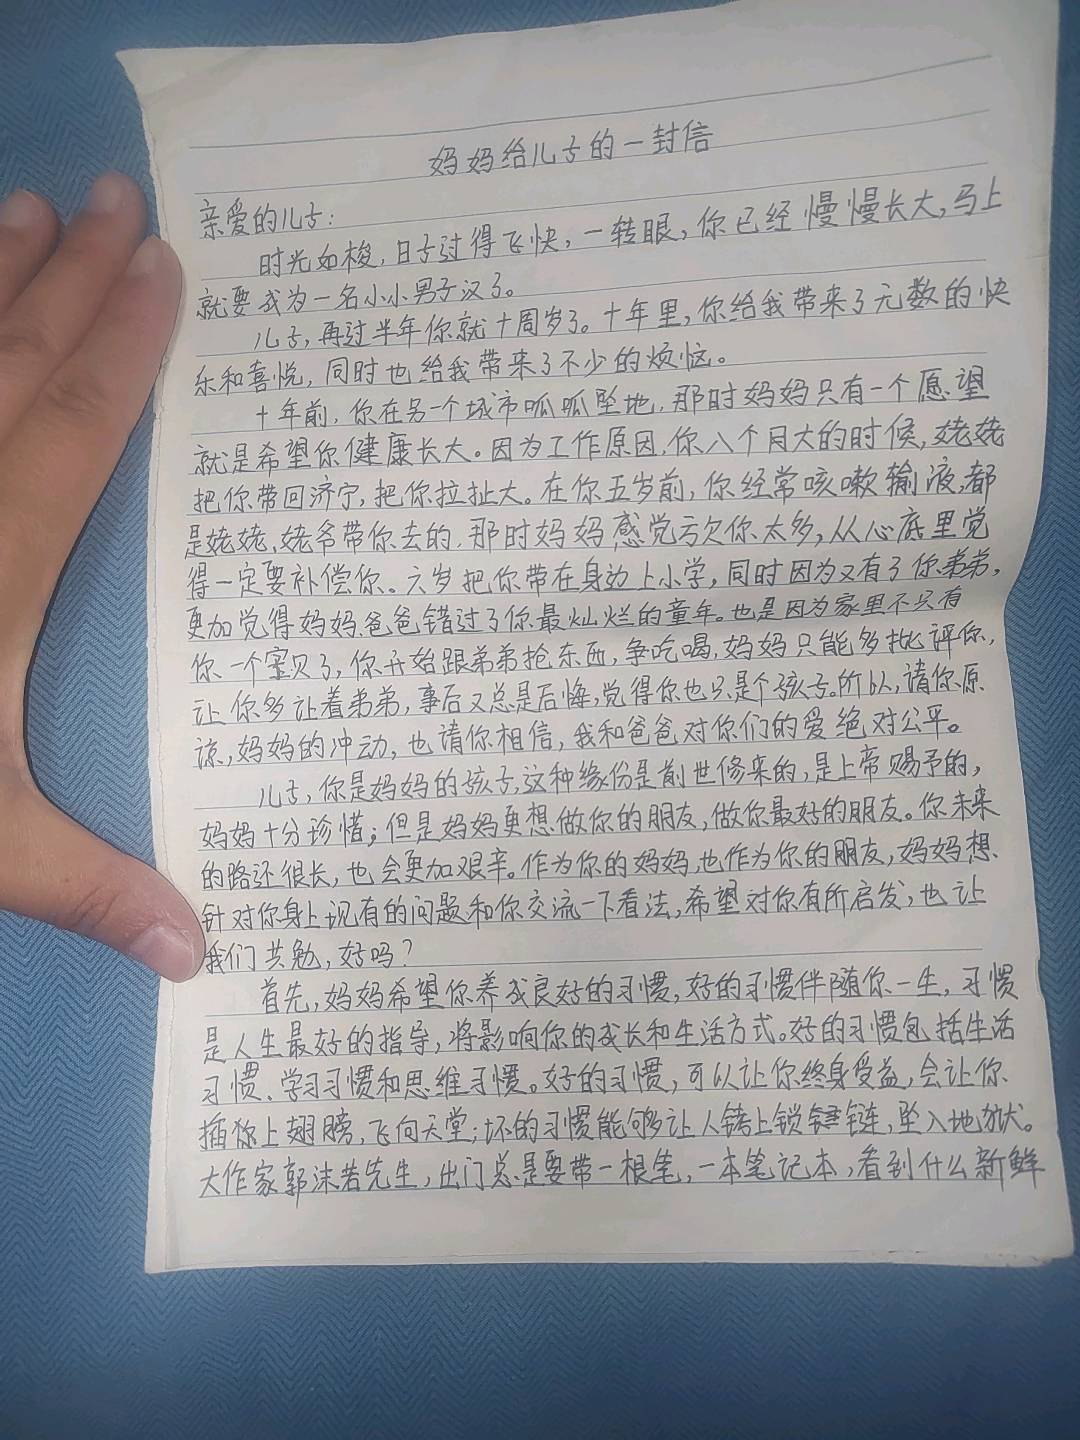 妈妈给儿子的一封信
亲爱的儿子：
时光如梭，日子过得飞快，一转眼，你已经慢慢长大，马上
就要成为一名小小男子汉了。
儿子，再过半年你就十周岁了。十年里，你给我带来了无数的快
乐和喜悦，同时也给我带来了不少的烦恼。
十年前，你在另一个城市呱呱坠地，那时妈妈只有一个愿望
就是希望你健康长大。因为工作原因，你八个月大的时候，姥姥
把你带回济宁，把你拉扯大。在你五岁前，你经常咳嗽输液，都
是姥姥、姥爷带你去的，那时妈妈感觉亏欠你太多，从心底里觉
得一定要补偿你。六岁把你带在身边上小学，同时因为又有了你弟弟，
更加觉得妈妈、爸爸错过了你最灿烂的童年。也是因为家里不只有
你一个宝贝了，你开始跟弟弟抢东西，争吃喝，妈妈只能多批评你，
让你多让着弟弟，事后又总是后悔，觉得你也只是个孩子。所以，请你原
谅，妈妈的冲动，也请你相信，我和爸爸对你们的爱绝对公平。
儿子，你是妈妈的孩子，这种缘份是前世修来的，是上帝赐予的，
妈妈十分珍惜；但是妈妈更想做你的朋友，做你最好的朋友。你未来
的路还很长，也会更加艰辛。作为你的妈妈，也作为你的朋友，妈妈想
针对你身上现有的问题和你交流一下看法，希望对你有所启发，也让
我们共勉，好吗？
首先，妈妈希望你养成良好的习惯，好的习惯伴随你一生，习惯
是人生最好的指导，将影响你的成长和生活方式。好的习惯包括生活
习惯、学习习惯和思维习惯。好的习惯，可以让你终身受益，会让你
插你上翅膀，飞向天堂；坏的习惯能够让人铐上锁链，坠入地狱。
大作家郭沫若先生，出门总是要带一根笔，一本笔记本，看到什么新鲜